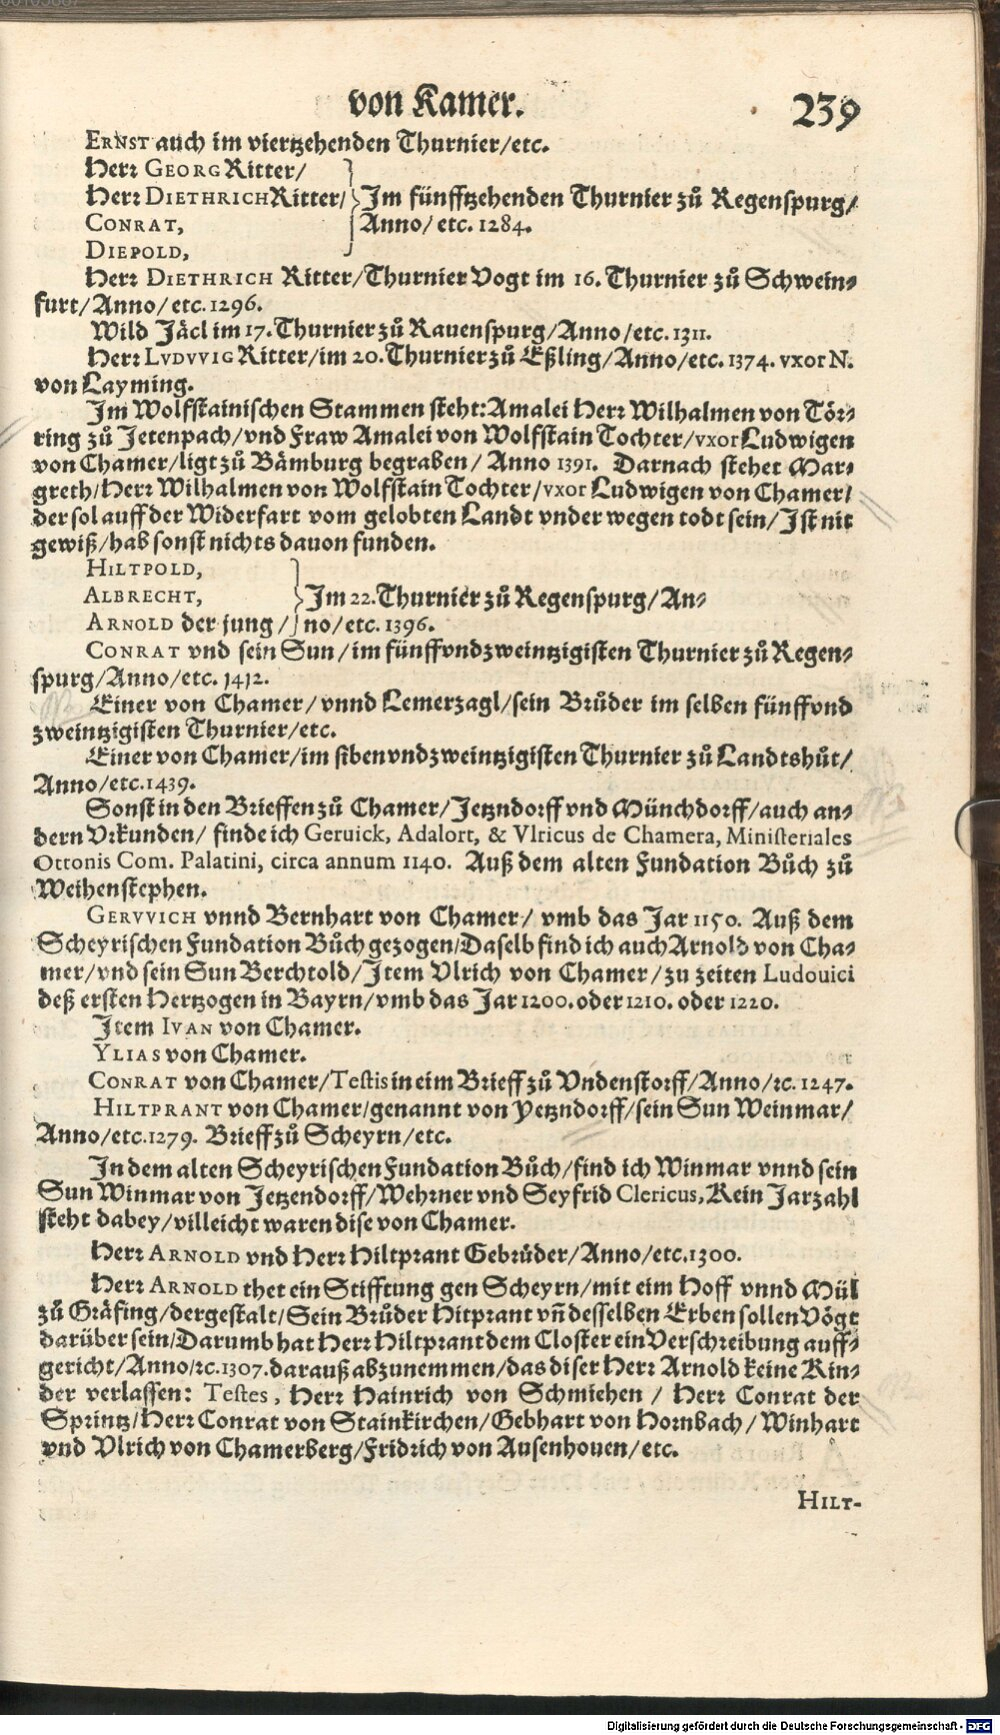 von Kamer. 239
ERNST auch im viertzehenden Thurnier/etc.
Herr GEORG Ritter/
Herr DIETHRICH Ritter/ Im fünfftzehenden Thurnier zů Regenspurg/
CONRAT, Anno/ etc. 1284.
DIEPOLD,
Herr DIETHRICH Ritter/Thurnier Vogt im 16. Thurnier zů Schwein-
furt/Anno/etc. 1296.
Wild Jäcl im 17. Thurnier zů Rauenspurg/Anno/etc. 1311.
Herr LVDVVIG Ritter/im 20. Thurnier zů Eßling/Anno/etc. 1374. vxor N.
von Layming.
Im Wolfstainischen Stammen steht: Amalei Herr Wilhalmen von Tör-
ring zů Jetenpach/vnd Fraw Amalei von Wolfstain Tochter/vxor Ludwigen
von Chamer/ligt zů Bämburg begraben/ Anno 1391. Darnach stehet Mar-
greth/Herr Wilhalmen von Wolfstain Tochter/vxor Ludwigen von Chamer/
der sol auff der Widerfart vom gelobten Landt vnder wegen todt sein/Ist nit
gewiß/hab sonst nichts dauon funden.
HILTPOLD,
ALBRECHT, Im 22. Thurnier zů Regenspurg/An-
ARNOLD der jung/ no/etc. 1396.
CONRAT vnd sein Sun/im fünffvndzweintzigisten Thurnier zů Regen-
spurg/Anno/etc. 1412.
Einer von Chamer/ vnnd Lemerzagl/sein Brůder im selben fünffvnd
zweintzigisten Thurnier/etc.
Einer von Chamer/im sibenvndzweintzigisten Thurnier zů Landtshůt/
Anno/etc. 1439.
Sonst in den Brieffen zů Chamer/Jetzndorff vnd Münchdorff/auch an-
dern Vrkunden/ finde ich Geruick, Adalort, & Vlricus de Chamera, Ministeriales
Ottonis Com. Palatini, circa annum 1140. Auß dem alten Fundation Bůch zů
Weihenstephen.
GERVVICH vnnd Bernhart von Chamer/ vmb das Jar 1150. Auß dem
Scheyrischen Fundation Bůch gezogen/Daselb find ich auch Arnold von Cha-
mer/vnd sein Sun Berchtold/Item Vlrich von Chamer/zu zeiten Ludouici
deß ersten Hertzogen in Bayrn/vmb das Jar 1200. oder 1210. oder 1220.
Item IVAN von Chamer.
YLIAS von Chamer.
CONRAT von Chamer/Testis in eim Brieff zů Vndenstorff/Anno/ꝛc. 1247.
HILTPRANT von Chamer/genannt von Yetzndorff/sein Sun Weinmar/
Anno/etc. 1279. Brieff zů Scheyrn/etc.
In dem alten Scheyrischen Fundation Bůch/find ich Winmar vnnd sein
Sun Winmar von Jetzendorff/Wehrner vnd Seyfrid Clericus, Kein Jarzahl
steht dabey/villeicht waren dise von Chamer.
Herr ARNOLD vnd Herr Hiltprant Gebrůder/Anno/etc. 1300.
Herr ARNOLD thet ein Stifftung gen Scheyrn/mit eim Hoff vnnd Mül
zů Gräfing/dergestalt/Sein Brůder Hitprant vñ desselben Erben sollen Vögt
darüber sein/Darumb hat Herr Hiltprant dem Closter ein Verschreibung auff-
gericht/Anno/ꝛc. 1307. darauß abzunemmen/das diser Herr Arnold keine Kin-
der verlassen: Testes, Herr Hainrich von Schmiehen / Herr Conrat der
Sprintz/Herr Conrat von Stainkirchen/Gebhart von Hornbach/Winhart
vnd Vlrich von Chamerberg/Fridrich von Ausenhouen/etc.
HILT-
Digitalisierung gefördert durch die Deutsche Forschungsgemeinschaft - DFG